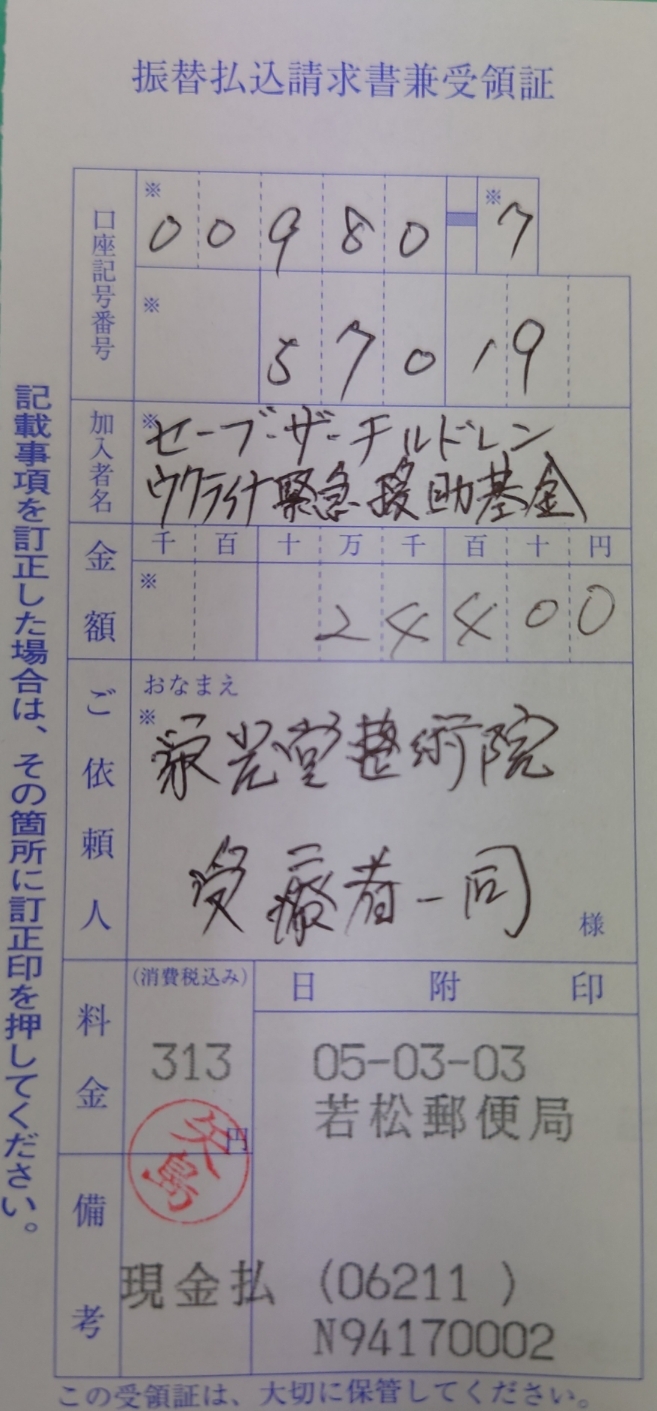 振替払込請求書兼受領証
口座記号番号
※ ※
00980-7
※
57019
加入者名
※
セーブ・ザ・チルドレン
ウクライナ緊急援助基金
金額
千百十万千百十円
※
24400
ご依頼人
おなまえ
※
光堂整術院
受療者一同
様
料金
(消費税込み)
313
円
日附印
05-03-03
若松郵便局
矢島
備考
現金払 (06211 )
N94170002
この受領証は、大切に保管してください。
記載事項を訂正した場合は、その箇所に訂正印を押してください。